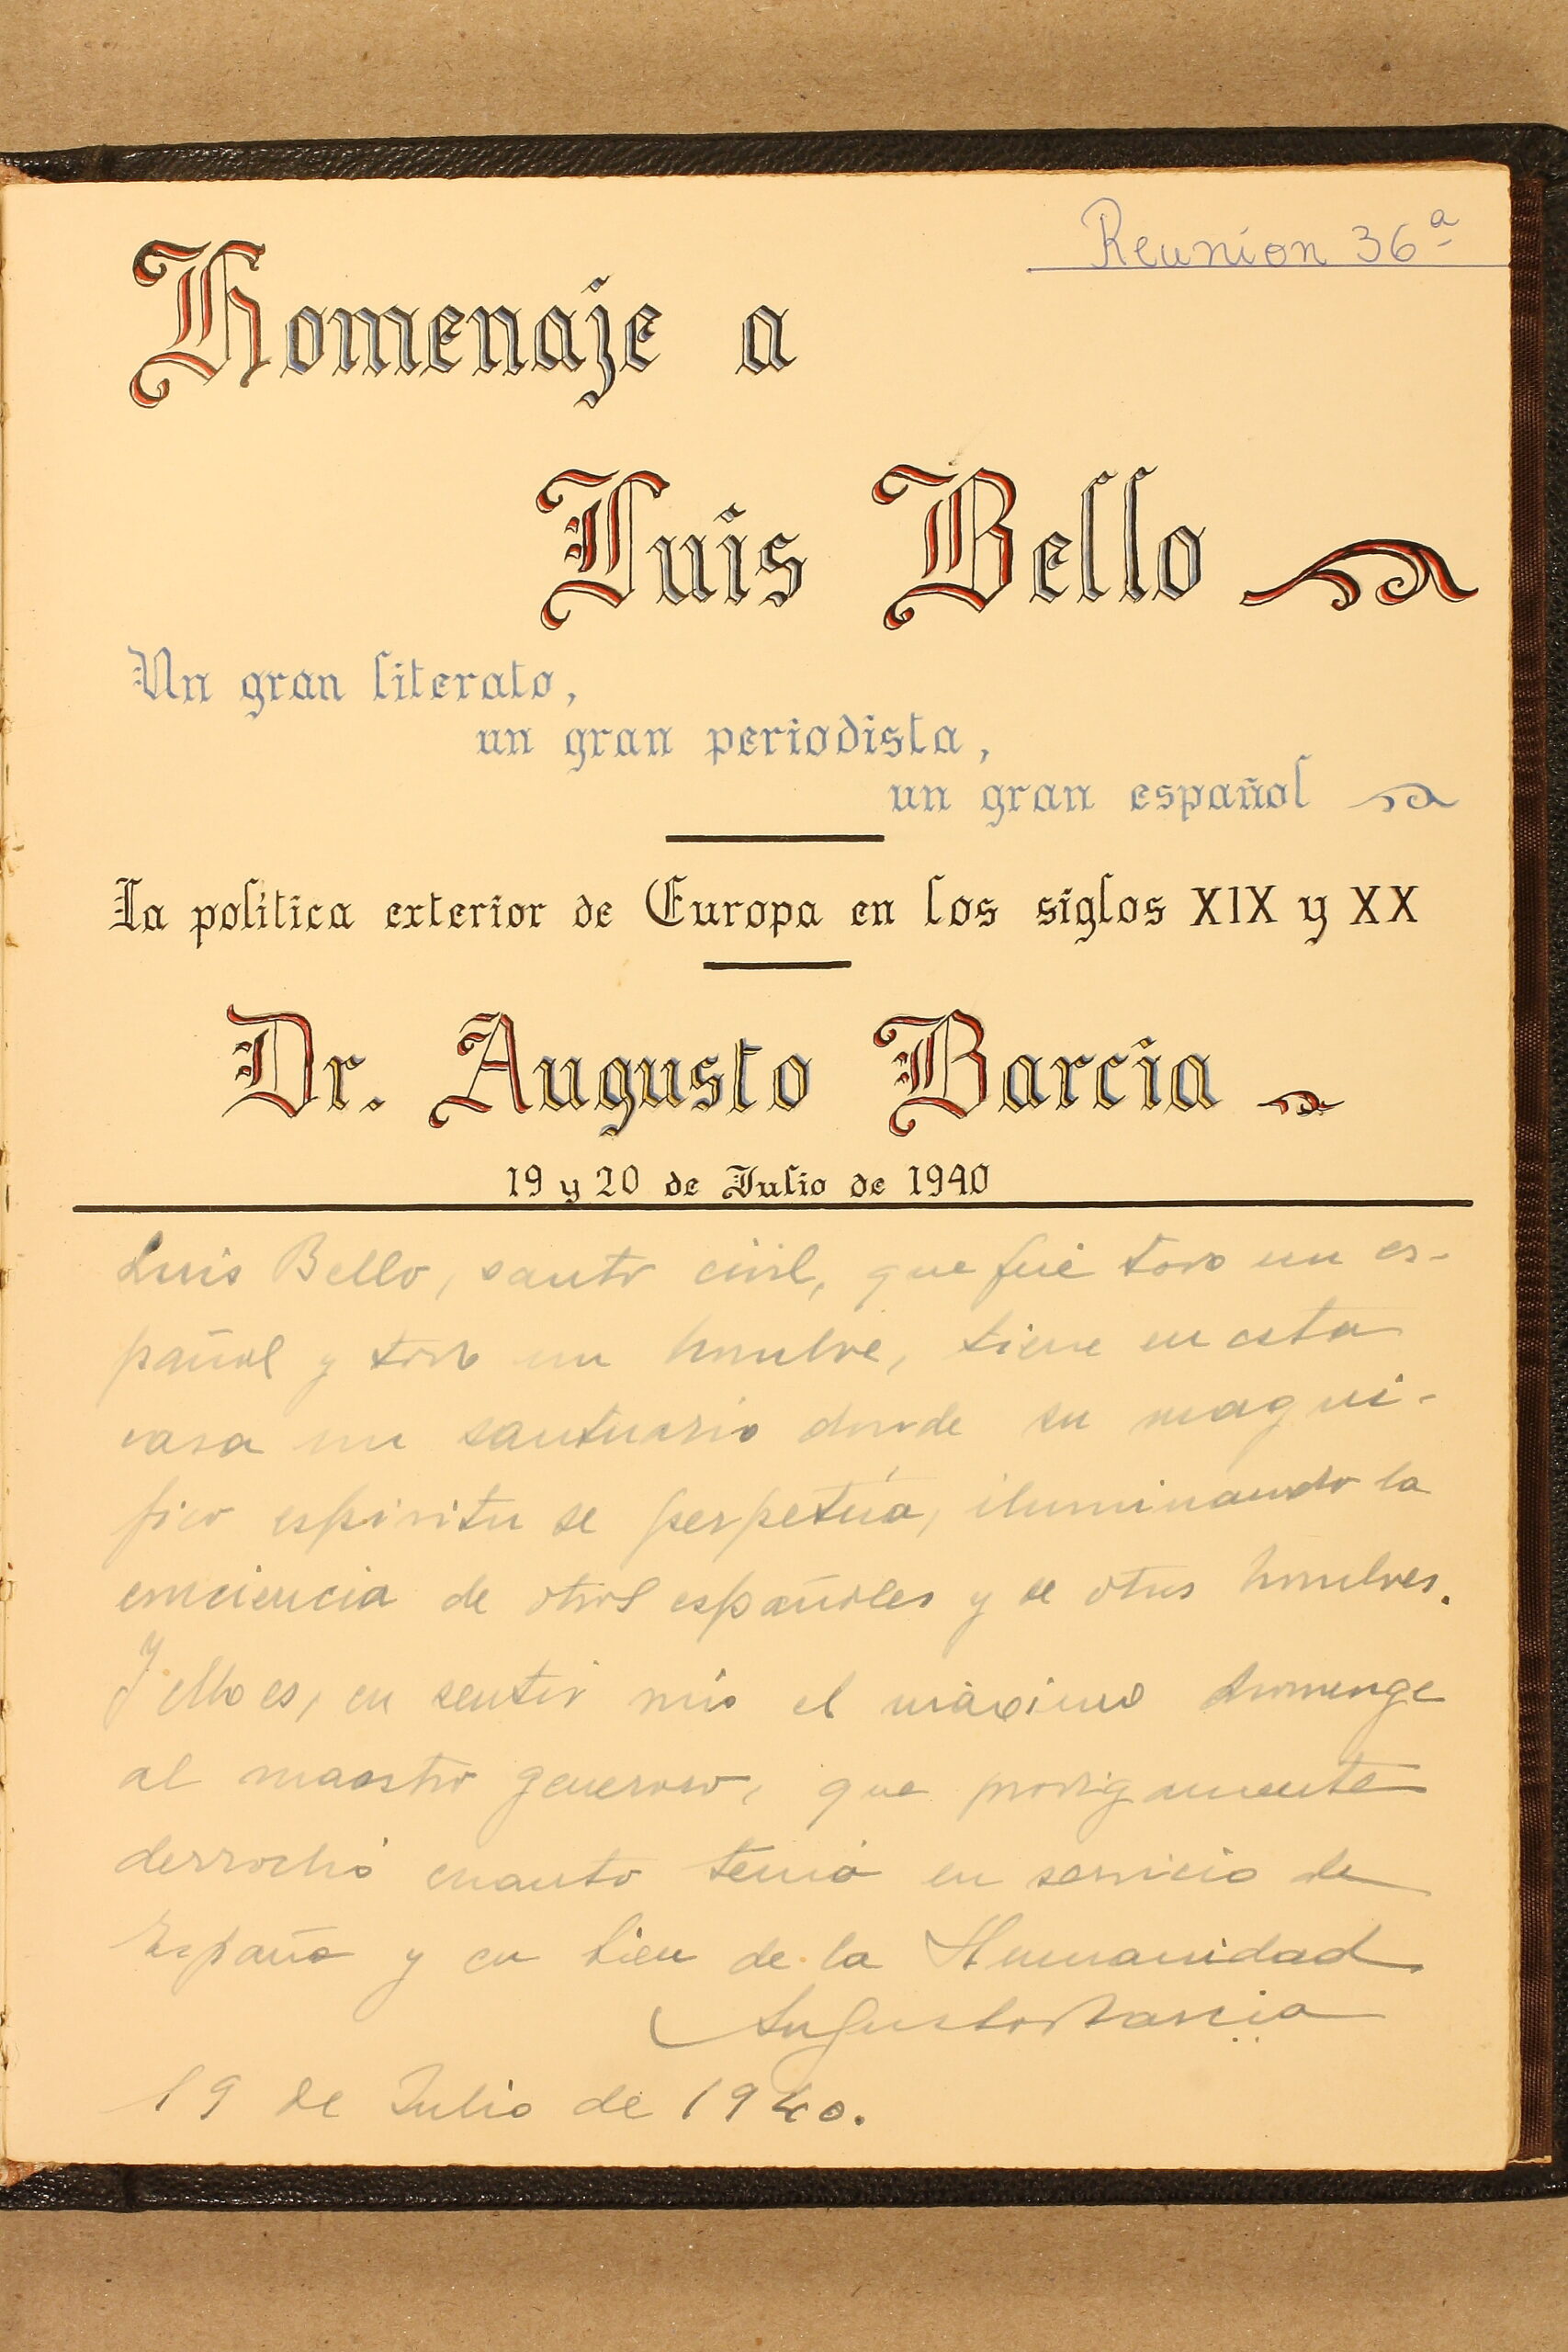 Reunion 36ª
Homenaje a
Luis Bello
Un gran literato,
un gran periodista,
un gran español
La política exterior de Europa en los siglos XIX y XX
Dr. Augusto Barcia
19 y 20 de Julio de 1940
Luis Bello, santo civil, que fué todo un es-
pañol y todo un hombre, tiene en esta
casa un santuario donde su magni-
fico espiritu se perpetúa, iluminando la
conciencia de otros españoles y de otros hombres.
Y ello es, en sentir mío el máximo homenge
al maestro generoso, que prodigamente
derrochó cuanto tenía en servicio de
España y en bien de la Humanidad
Augusto Barcia
19 de Julio de 1940.